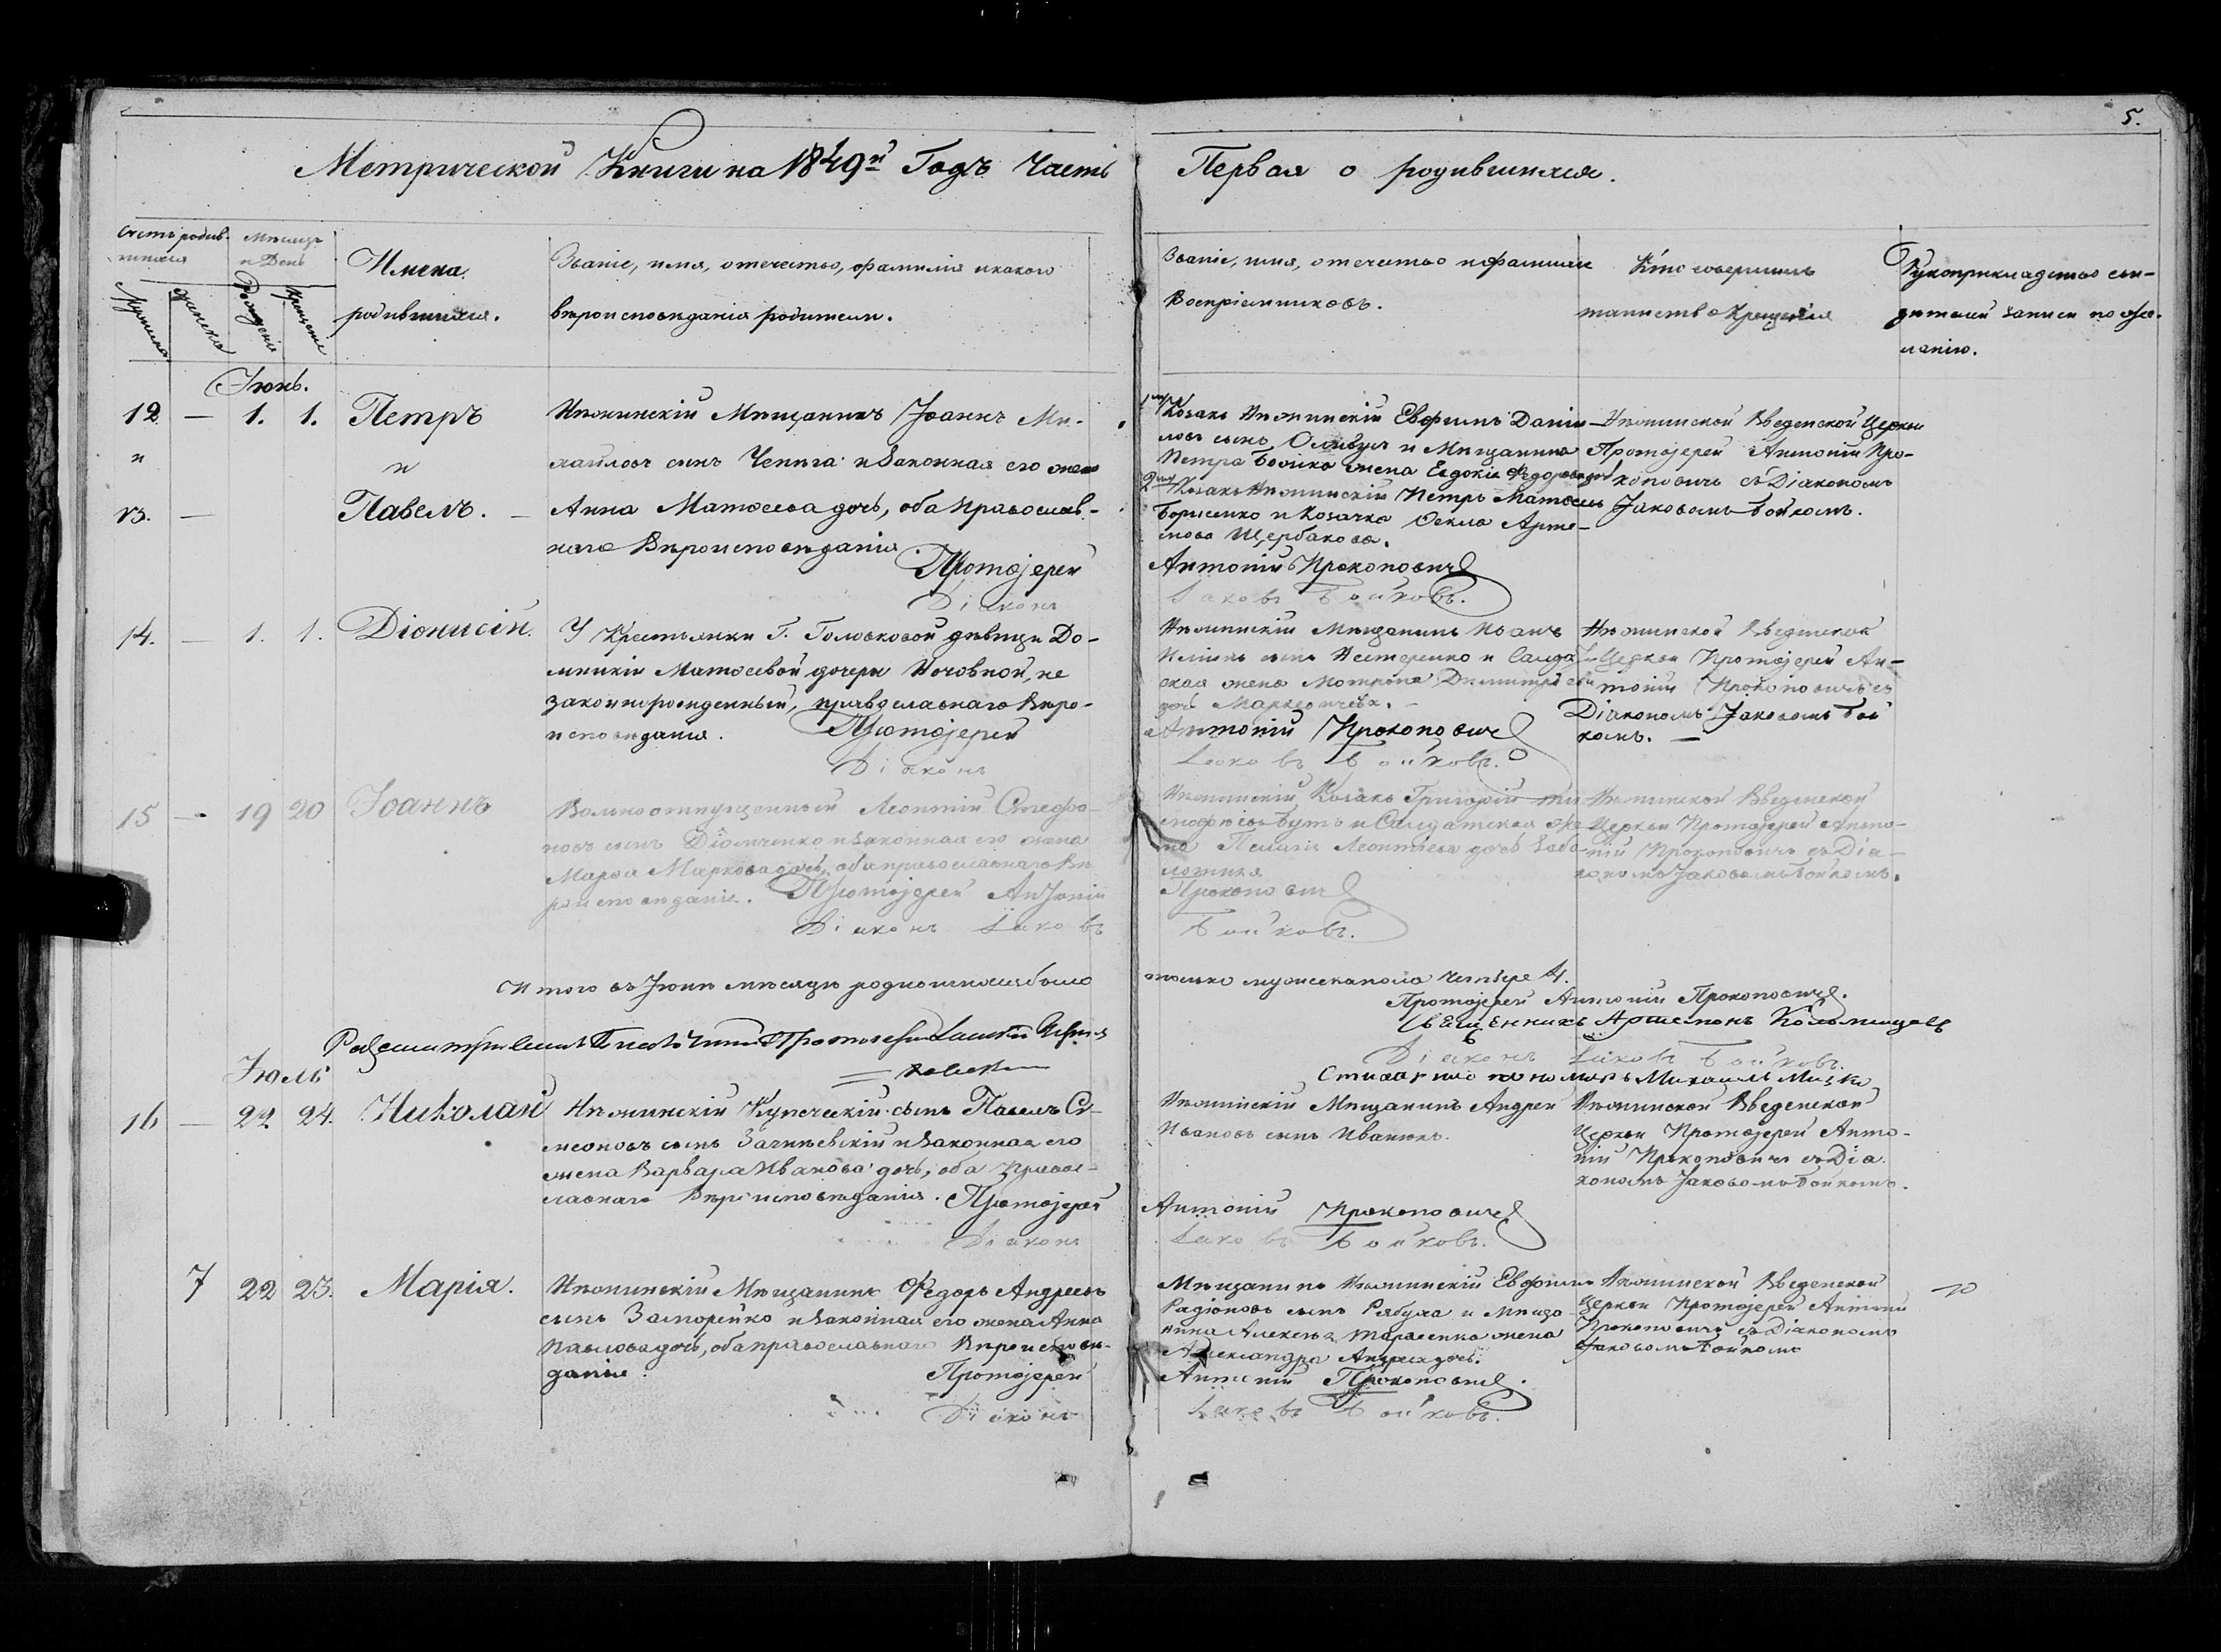 5.
Метрической Книги на 1849й Годъ Часть Первая о родившихся.
Счетъ родив-
шихся
Мѣсяцъ
и День
Мужеска
женска
Рожденія
Крещенія
Имена
родившихся.
Званіе, имя, отечество, фамилія и какого
вѣроисповѣданія родители.
Званіе, имя, отечество и фамилія
Воспріемниковъ.
Кто совершилъ
таинство Крещенія
Рукоприкладство сви-
дѣтелей записи по же-
ланію.
Іюнь.
12 — 1. 1. Петръ
и
13. — Павелъ. —
Нѣжинскій Мѣщанинъ Іоаннъ Ми-
хайловъ сынъ и законная его жена
Анна Матѳеева дочь, оба православ-
наго Вѣроисповѣданія.
Протоіерей
Діаконъ
Козакъ Нѣжинскій Евфимъ Даніи-
ловъ сынъ и Мѣщанина
Петра Бойка жена Евдокія Ѳедорова дочь
Козакъ Нѣжинскій Петръ Матѳеевъ
Борисенко и Козачка Ѳекла Арте-
мова Щербакова.
Антоній Прокоповичъ
Іаковъ Бойковъ.
Нѣжинской Введенской Церкви
Протоіерей Антоній Про-
коповичъ съ Діакономъ
Іаковомъ Бойкомъ.
14. — 1. 1. Діонисій.
У Крестьянки Г. дѣвицы До-
мникіи Матѳеевой дочери не
законнорожденный, православнаго Вѣро-
исповѣданія. Протоіерей
Діаконъ
Нѣжинскій Мѣщанинъ Иванъ
сынъ Нестеренко и Солдат-
ская жена Мотрона Димитріева
дочь
Антоній Прокоповичъ
Іаковъ Бойковъ.
Нѣжинской Введенской
Церкви Протоіерей Ан-
тоній Прокоповичъ съ
Діакономъ Іаковомъ Бой
комъ. —
15 — 19 20 Іоаннъ
Вольноотпущенный Леонтій Стефа-
новъ сынъ и законная его жена
Марѳа Маркова дочь, оба православнаго Вѣ
роисповѣданія. Протоіерей Антоній
Діаконъ Іаковъ
Нѣжинскій Козакъ Григорій Ти-
моѳеевъ Бутъ и Солдатская же-
на Пелагія Леонтіева дочь
Прокоповичъ
Бойковъ.
Нѣжинской Введенской
Церкви Протоіерей Анто-
ній Прокоповичъ съ Діа-
кономъ Іаковомъ Бойкомъ.
Итого въ Іюнѣ мѣсяцѣ родившихся было только мужеска пола четыре 4.
Протоіерей Антоній Прокоповичъ.
Священникъ Артемонъ Коломійцевъ
Діаконъ Іаковъ Бойковъ.
пономарь Михаилъ
Іюль
16 — 22 24. Николай
Нѣжинскій Купеческій сынъ Павелъ Си-
меоновъ сынъ и законная его
жена Варвара Иванова дочь, оба право-
славнаго Вѣроисповѣданія. Протоіерей
Діаконъ
Нѣжинскій Мѣщанинъ Андрей
Ивановъ сынъ Иванюкъ.
Антоній Прокоповичъ
Іаковъ Бойковъ.
Нѣжинской Введенской
Церкви Протоіерей Анто-
ній Прокоповичъ съ Діа-
кономъ Іаковомъ Бойкомъ.
7 22 23. Марія.
Нѣжинскій Мѣщанинъ Ѳедоръ Андреевъ
сынъ и законная его жена Анна
Павлова дочь, оба православнаго Вѣроисповѣ-
данія. Протоіерей
Діаконъ
Мѣщанинъ Нѣжинскій Евфимъ
Радіоновъ сынъ Рябуха и Мѣща-
нина Алексѣя Тарасенка жена
Александра Андреева дочь.
Антоній Прокоповичъ.
Іаковъ Бойковъ.
Нѣжинской Введенской
Церкви Протоіерей Антоній
Прокоповичъ съ Діакономъ
Іаковомъ Бойкомъ